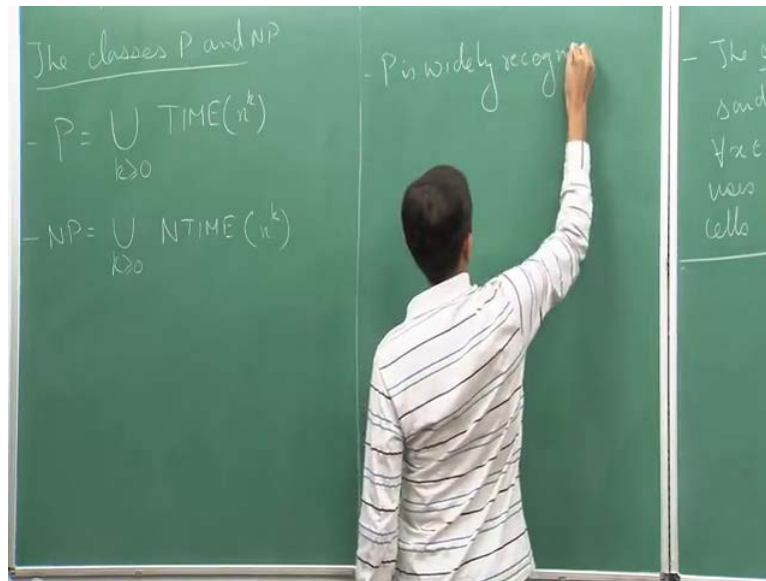 The classes P and NP
- P = ⋃ TIME(n^k)
k≥0
- NP = ⋃ NTIME(n^k)
k≥0
- P is widely recogn
- The
∀x ∈
uses
cells